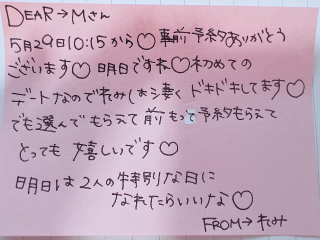 DEAR→Mさん
5月29日10:15から♡事前予約ありがとう
ございます♡明日ですね♡初めての
デートなのでれみしぉ凄くドキドキしてます♡
でも選んでもらえて前もって予約もらえて
とっても嬉しいです♡
明日は2人の特別な日に
なれたらいいな♡
FROM→れみ